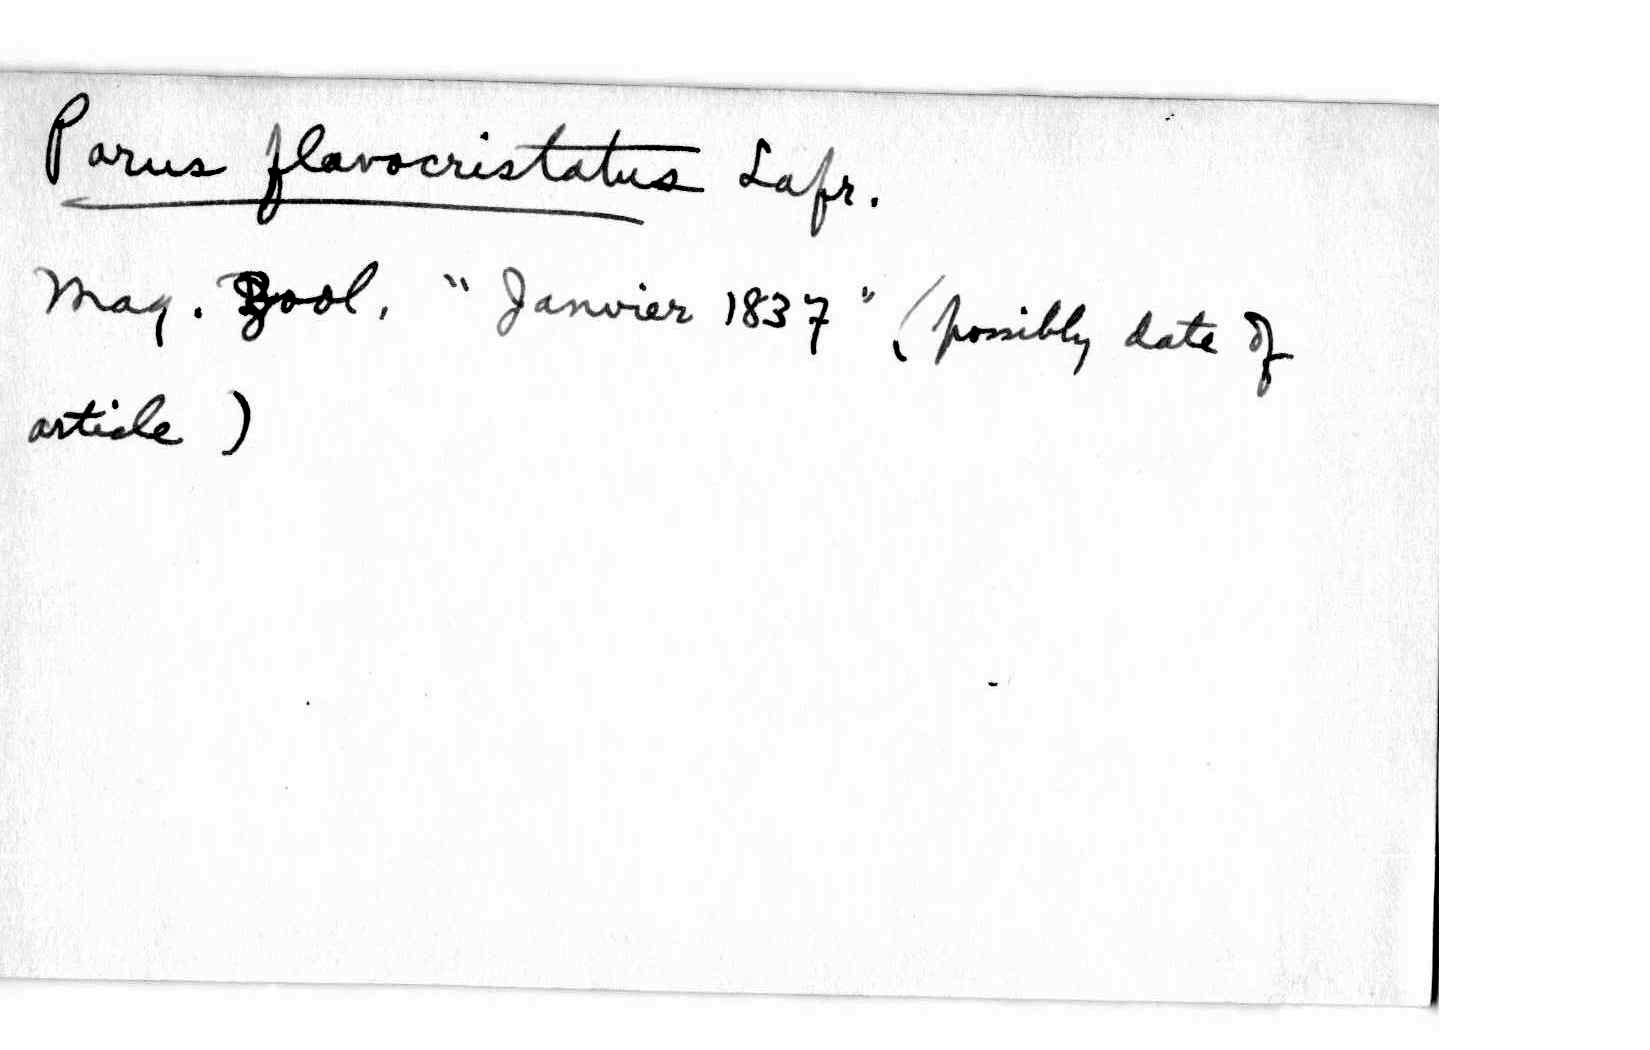 Parus flavocristatus Lafr.
Mag. Zool. "Janvier 1837" (possibly date of
article)